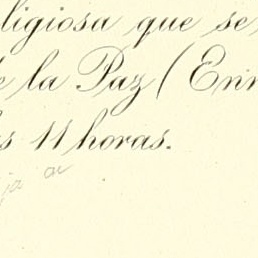 ligiosa que se
de la Paz (Enr
s 11 horas.